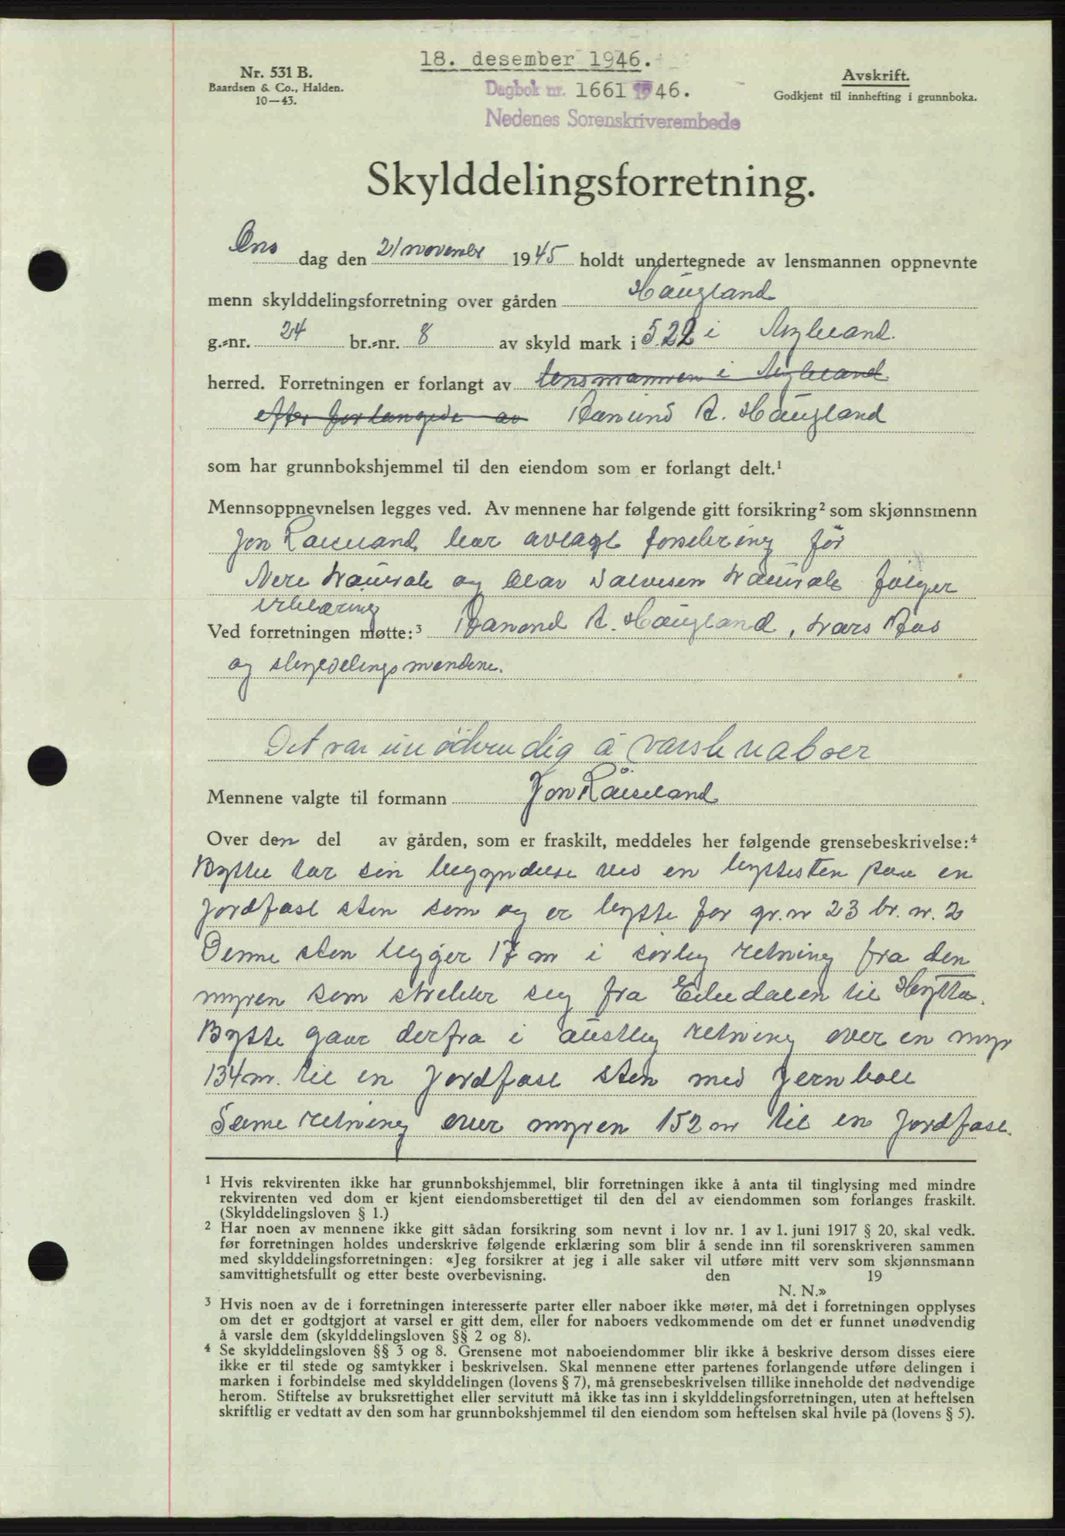 18. desember 1946.
Nr. 531 B.
Baardsen & Co., Halden.
10—43.
Dagbok nr. 1661 1946.
Nedenes Sorenskriverembede
Avskrift.
Godkjent til innhefting i grunnboka.
Skylddelingsforretning.
Ons dag den 21 november 1945 holdt undertegnede av lensmannen oppnevnte
menn skylddelingsforretning over gården Haugland
g.-nr. 24 br.-nr. 8 av skyld mark i 5.22 i
herred. Forretningen er forlangt av lensmannen i
efter forlangede av Aamund A. Haugland
som har grunnbokshjemmel til den eiendom som er forlangt delt.¹
Mennsoppnevnelsen legges ved. Av mennene har følgende gitt forsikring² som skjønnsmenn
Jon har avlagt før
og Olav følger
erklæring
Ved forretningen møtte:³ A. Haugland, Lars Aas
og skylddelingsmendene.
Det var unödvendig å varsle naboer
Mennene valgte til formann Jon Räiseland
Over den del av gården, som er fraskilt, meddeles her følgende grensebeskrivelse:⁴
Byttet tar sin begyndelse ved en byttesten paa en
jordfast sten som og er bytte for gr. nr 23 br. nr. 2
Denne sten ligger 17 m i sörlig retning fra den
myren som strekker seg fra til
Bytte gaar derfra i austlig retning over en myr
134 m. til en jordfast sten med jernbolt
Same retning over myren 152 m til en jordfast.
¹ Hvis rekvirenten ikke har grunnbokshjemmel, blir forretningen ikke å anta til tinglysing med mindre
rekvirenten ved dom er kjent eiendomsberettiget til den del av eiendommen som forlanges fraskilt.
(Skylddelingsloven § 1.)
² Har noen av mennene ikke gitt sådan forsikring som nevnt i lov nr. 1 av 1. juni 1917 § 20, skal vedk.
før forretningen holdes underskrive følgende erklæring som blir å sende inn til sorenskriveren sammen
med skylddelingsforretningen: «Jeg forsikrer at jeg i alle saker vil utføre mitt verv som skjønnsmann
samvittighetsfullt og etter beste overbevisning. den 19
N. N.»
³ Hvis noen av de i forretningen interesserte parter eller naboer ikke møter, må det i forretningen opplyses
om det er godtgjort at varsel er gitt dem, eller for naboers vedkommende om det er funnet unødvendig
å varsle dem (skylddelingsloven §§ 2 og 8).
⁴ Se skylddelingsloven §§ 3 og 8. Grensene mot naboeiendommer blir ikke å beskrive dersom disses eiere
ikke er til stede og samtykker i beskrivelsen. Skal mennene etter partenes forlangende utføre delingen i
marken i forbindelse med skylddelingen (lovens § 7), må grensebeskrivelsen tillike inneholde det nødvendige
herom. Stiftelse av bruksrettighet eller servitutt må ikke tas inn i skylddelingsforretningen, uten at heftelsen
skriftlig er vedtatt av den som har grunnbokshjemmel til den eiendom som heftelsen skal hvile på (lovens § 5).